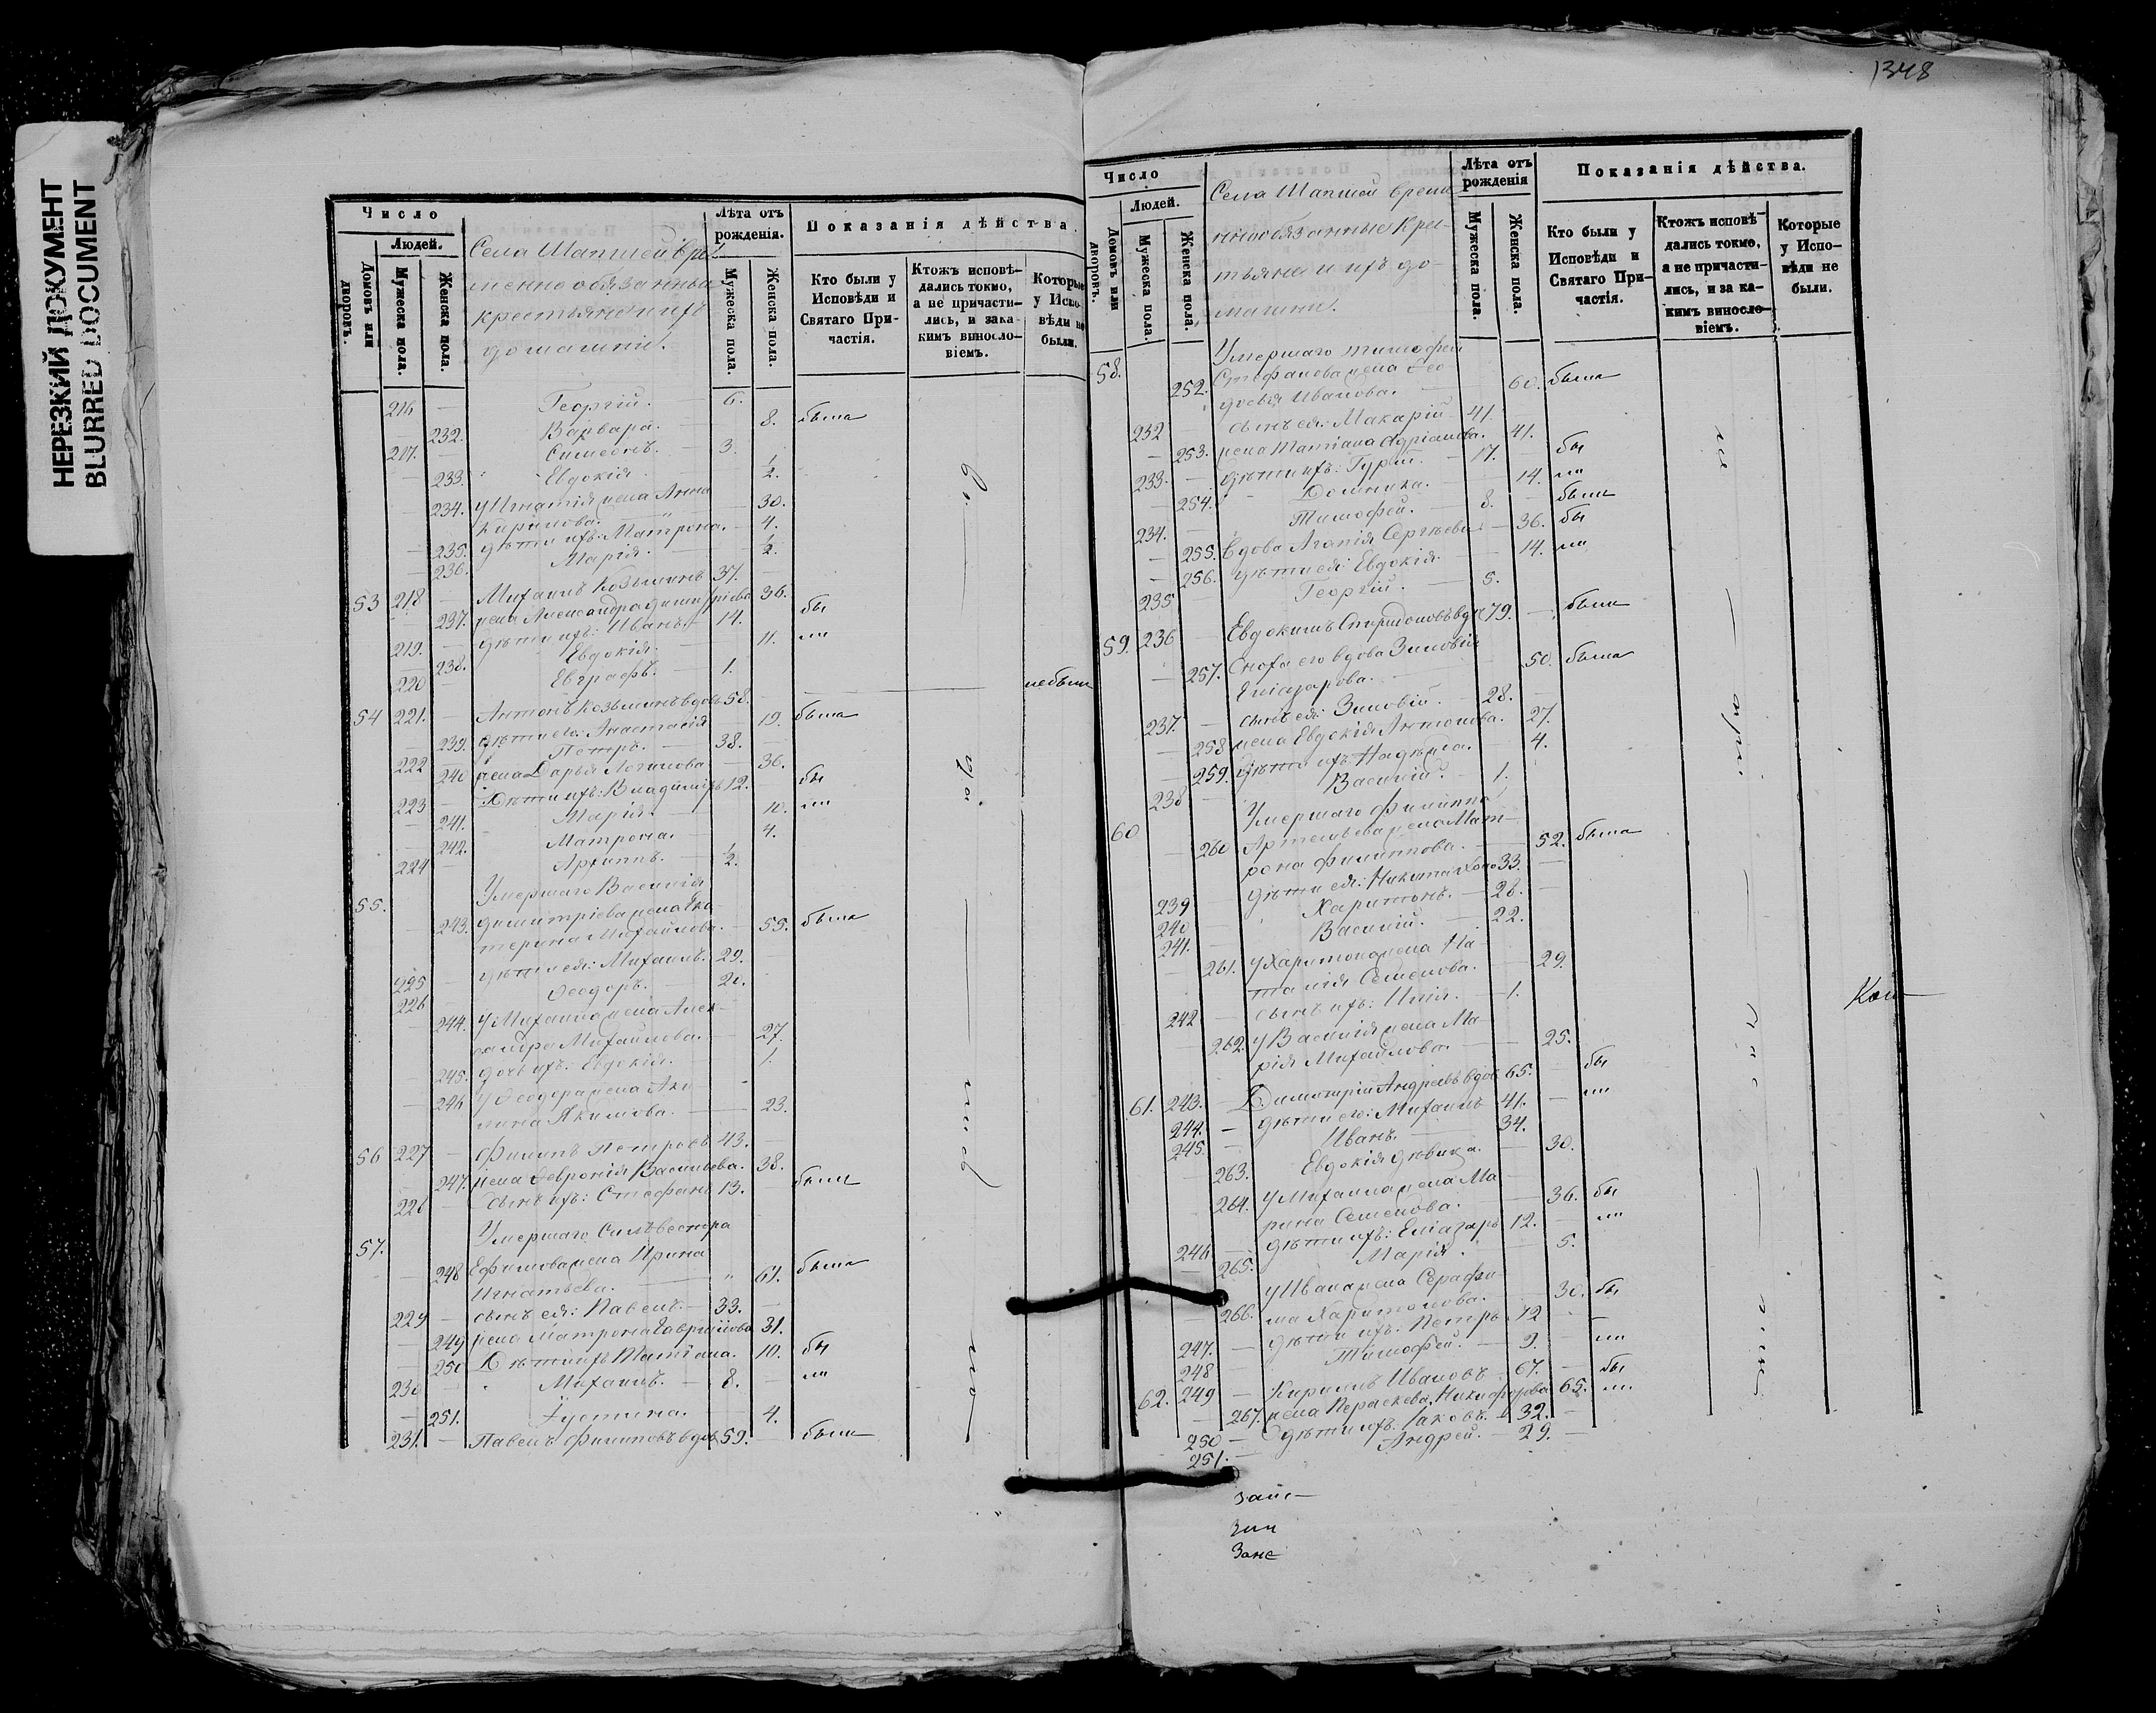 НЕРЕЗКИЙ ДОКУМЕНТ
BLURRED DOCUMENT
1348
Число
Людей.
Домовъ или дворовъ.
Мужеска пола.
Женска пола.
Села Шапшей вре-
менно обязанные
крестьяне и ихъ
домашніе.
Лѣта отъ рожденія.
Мужеска пола.
Женска пола.
Показанія дѣйства.
Кто были у Исповѣди и Святаго Причастія.
Ктожъ исповѣ-дались токмо, а не причасти-лись, и за ка-кимъ виносло-віемъ.
Которые у Испо-вѣди не были.
216 — Георгій. — 6.
— 232. Варвара. — 8. была
217. — Симеонъ. — 3.
— 233. Евдокія. 1/2.
— 234. У Игнатія жена Анна
Кирилова. — 30.
— 235. дѣти ихъ: Матрона. — 4.
— 236. Марія. — 1/2.
53 218 — Михаилъ Козьминъ 37. —
— 237. жена Александра Димитріева 36.
219. — дѣти ихъ: Иванъ. — 14. бы
— 238. Евдокія. 11. ли
220 — Евграфъ. — 1.
54 221. — Антонъ Козьминъ вдовъ 58. — небылъ
— 239. дѣти его: Анастасія — 19. была
222 — Петръ. — 38. —
— 240 жена Дарья Логинова — 36.
223 — Дѣти ихъ: Владиміръ 12. — бы
— 241. Марія. — 10. ли
— 242. Матрона. — 4.
224 — Архипъ. — 1/2.
55. Умершаго Василія
— 243. Димитріева жена Ека-
терина Михайлова. — 55. была
225 — дѣти ея: Михаилъ. 29. —
226 — Ѳеодоръ. — 20.
— 244. У Михаила жена Алек-
сандра Михайлова. — 27.
— 245. дочь ихъ: Евдокія. — 1.
— 246 У Ѳеодора жена Аку-
лина Якимова. — 23.
56 227 — Филипъ Петровъ 43. —
— 247. жена Ѳевронія Васильева. 38.
228 — сынъ ихъ: Стефанъ 13. — были
57. Умершаго Сильвестра
— 248 Ефимова жена Ирина
Игнатьева. — 61. была
229 — сынъ ея: Павелъ. — 33. —
— 249 жена Матрона Гавріилова 31.
— 250 Дѣти ихъ Татіана. — 10. бы
230 — Михаилъ. — 8. — ли
— 251. Іустина. — 4.
231. — Павелъ Филиповъ вдовъ 59. — былъ
Число
Людей.
Домовъ или дворовъ.
Мужеска пола.
Женска пола.
Села Шапшей време-
ннообязанные крес-
тьяне и ихъ до-
машніе.
Лѣта отъ рожденія
Мужеска пола.
Женска пола.
Показанія дѣйства.
Кто были у Исповѣди и Святаго При-частія.
Ктожъ исповѣ-дались токмо, а не причасти-лись, и за ка-кимъ виносло-віемъ.
Которые у Испо-вѣди не были.
58. Умершаго Тимофея
252. Стефанова жена Ѳео-
досья Иванова. — 60. была
232 сынъ ея: Макарій 41.
— 253. жена Татіана Адріанова. 41.
233. — дѣти ихъ: Гурій. — 17. — бы
— 254. Домника. — 14. ли
234. — Тимофей. — 8. — были
— 255. вдова Агапія Сергѣева — 36. бы
— 256. дѣти ея: Евдокія — 14. ли
235 Георгій. — 5.
59. 236 Евдокимъ Спиридоновъ вдов 79. — былъ
— 257. Сноха его вдова Зиновія
Еліазарова. — 50. была
237. — сынъ ея: Зиновій. — 28. —
— 258 жена Евдокія Антонова. 27.
— 259. дѣти ихъ Надежда. — 4.
238 — Василій. — 1.
60 Умершаго Филиппа
— 260 Артемьева жена Мат-
рона Филиппова. — 52. была
239 — дѣти ея: Никита холо 33. —
240 — Харитонъ. — 26. —
241. — Василій. — 22.
— 261. У Харитона жена На-
талія Семенова. — 29.
242 — сынъ ихъ: Илія. — 1.
— 262. У Василія жена Ма-
рія Михайлова. — 25.
61. 243. — Димитрій Андреевъ вдов 65. — бы
244. — дѣти его: Михаилъ 41. — ли
245. Иванъ. — 34.
263. Евдокія дѣвица. — 30.
264. У Михаила жена Ма-
рина Семенова. — 36. бы
246 — дѣти ихъ: Еліазаръ 12. — ли
— 265. Марія. — 5.
— 266. У Ивана жена Серафи-
ма Харитонова. — 30. бы
247. — дѣти ихъ. Петръ 12 —
248 Тимофей. — 9. — ли
62. 249 — Кирилъ Ивановъ 67. — бы
— 267. жена Параскева Никифорова 65. ли
250 — дѣти ихъ. Іаковъ. — 32. —
251. — Андрей. — 29. —